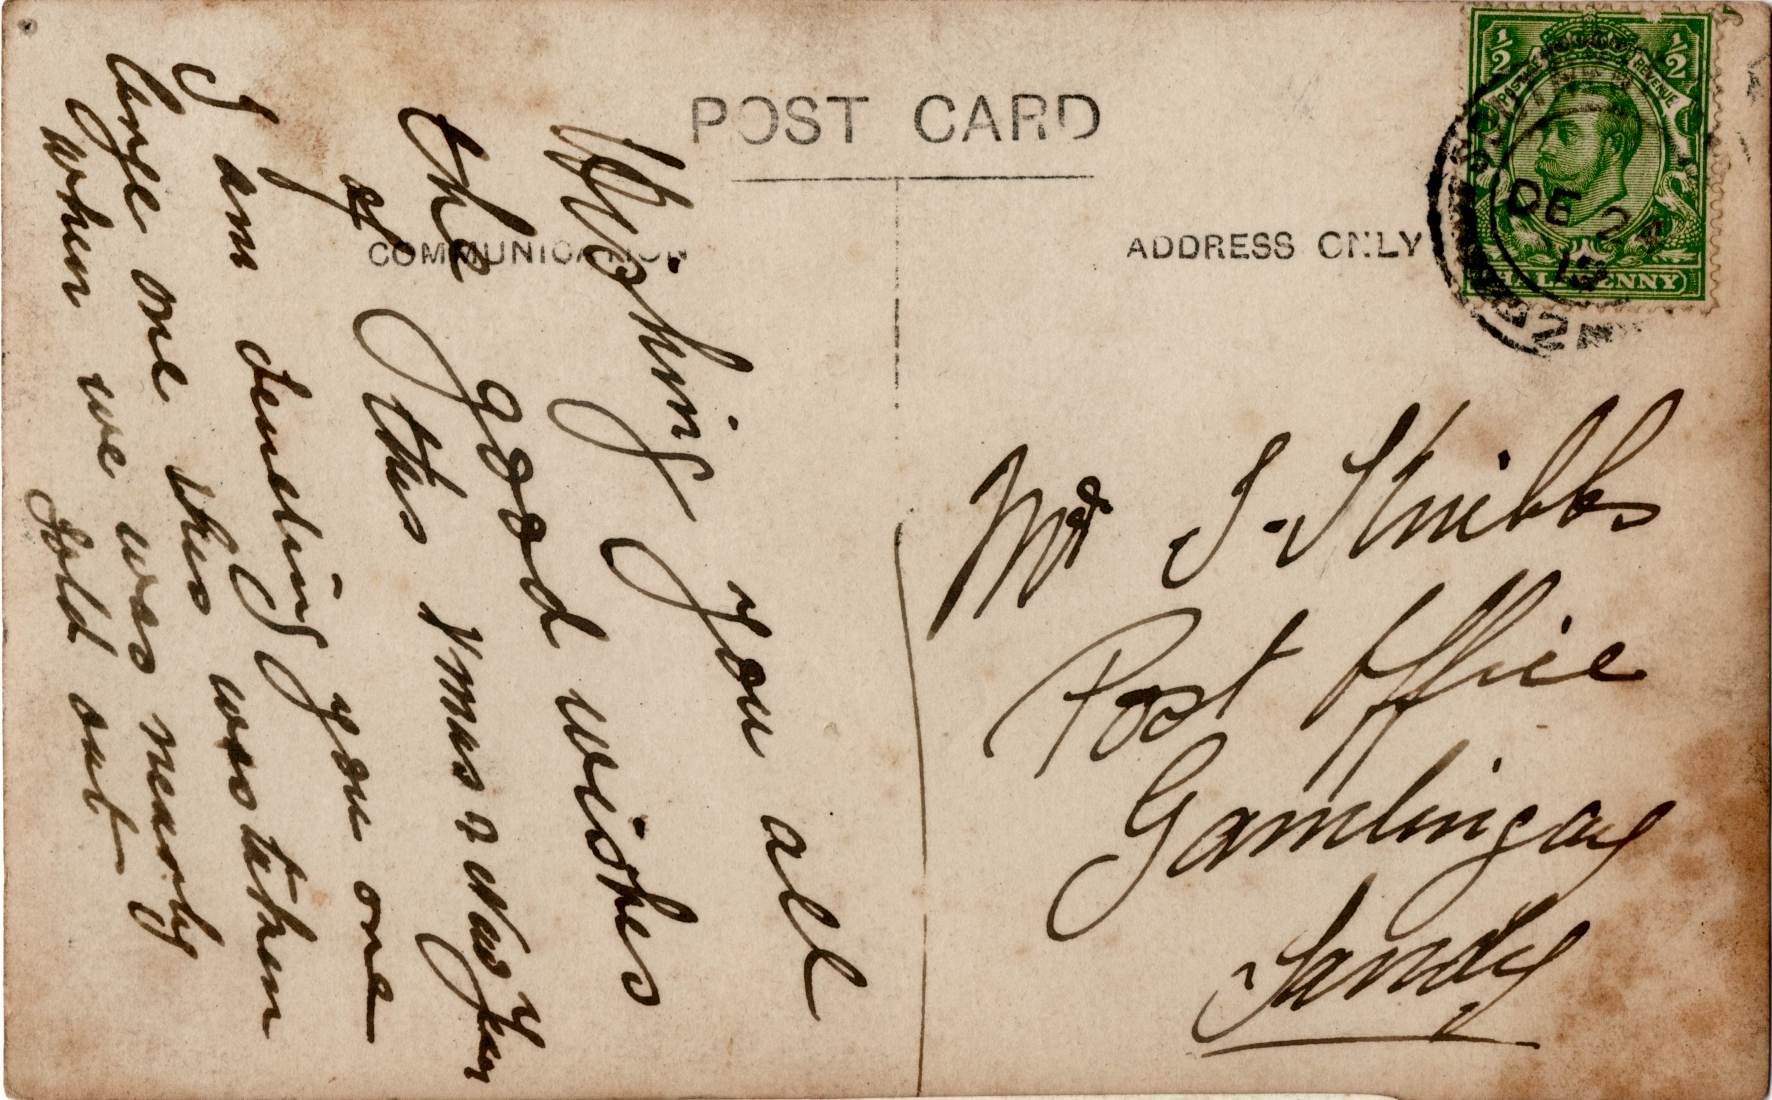 POST CARD
COMMUNICATION
ADDRESS ONLY
½ ½
POSTAGE REVENUE
HALFPENNY
DE 24
Wishing you all
the good wishes
of this Xmas & New Year
I am sending you one
large one this was taken
one was nearly
when we sold out
Mr J. Stubbs
Post Office
Gamlingay
Sandy